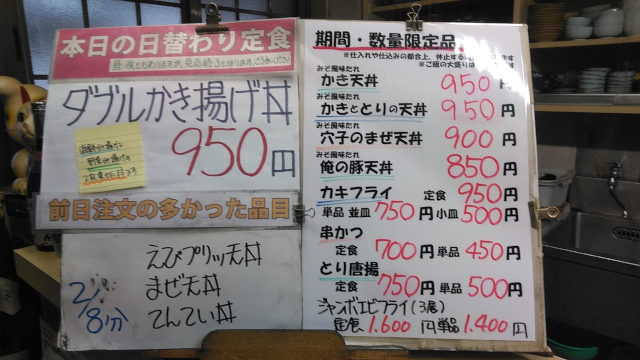 本日の日替わり定食
昼、夜ともわりますが、完売終了となります。ご了承ください
ダブルかき揚げ丼
950円
海鮮かき揚げと
野菜かき揚げの
2枚乗せた丼です
前日注文の多かった品目
2/8分
えびプリッ天丼
まぜ天丼
てんてい丼
期間・数量限定品
※仕入れや仕込みの都合上、休止する
※ご飯の大盛りは
みそ風味たれ
かき天丼 950円
みそ風味たれ
かきととりの天丼 950円
みそ風味たれ
穴子のまぜ天丼 900円
みそ風味たれ
俺の豚天丼 850円
カキフライ 定食 950円
単品 並皿 750円 小皿 500円
串かつ
定食 700円 単品 450円
とり唐揚
定食 750円 単品 500円
ジャンボエビフライ(3尾)
定食 1.600円 単品 1.400円